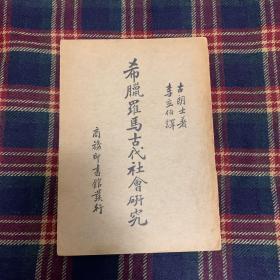 古朗士著
李玄伯譯
希臘羅馬古代社會研究
商務印書館發行